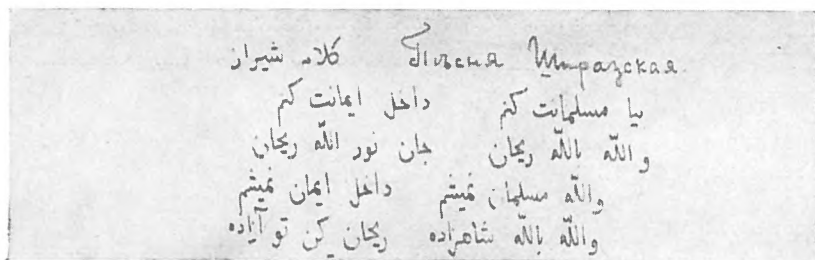 Пѣсня Ширазская. کلام شیراز
بیا مسلمانت کنم داخل ایمانت کنم
والله بالله ریحان جان نور الله ریحان
والله مسلمان نمیشم داخل ایمان نمیشم
والله بالله شاهزاده ریحان کن تو آزاده